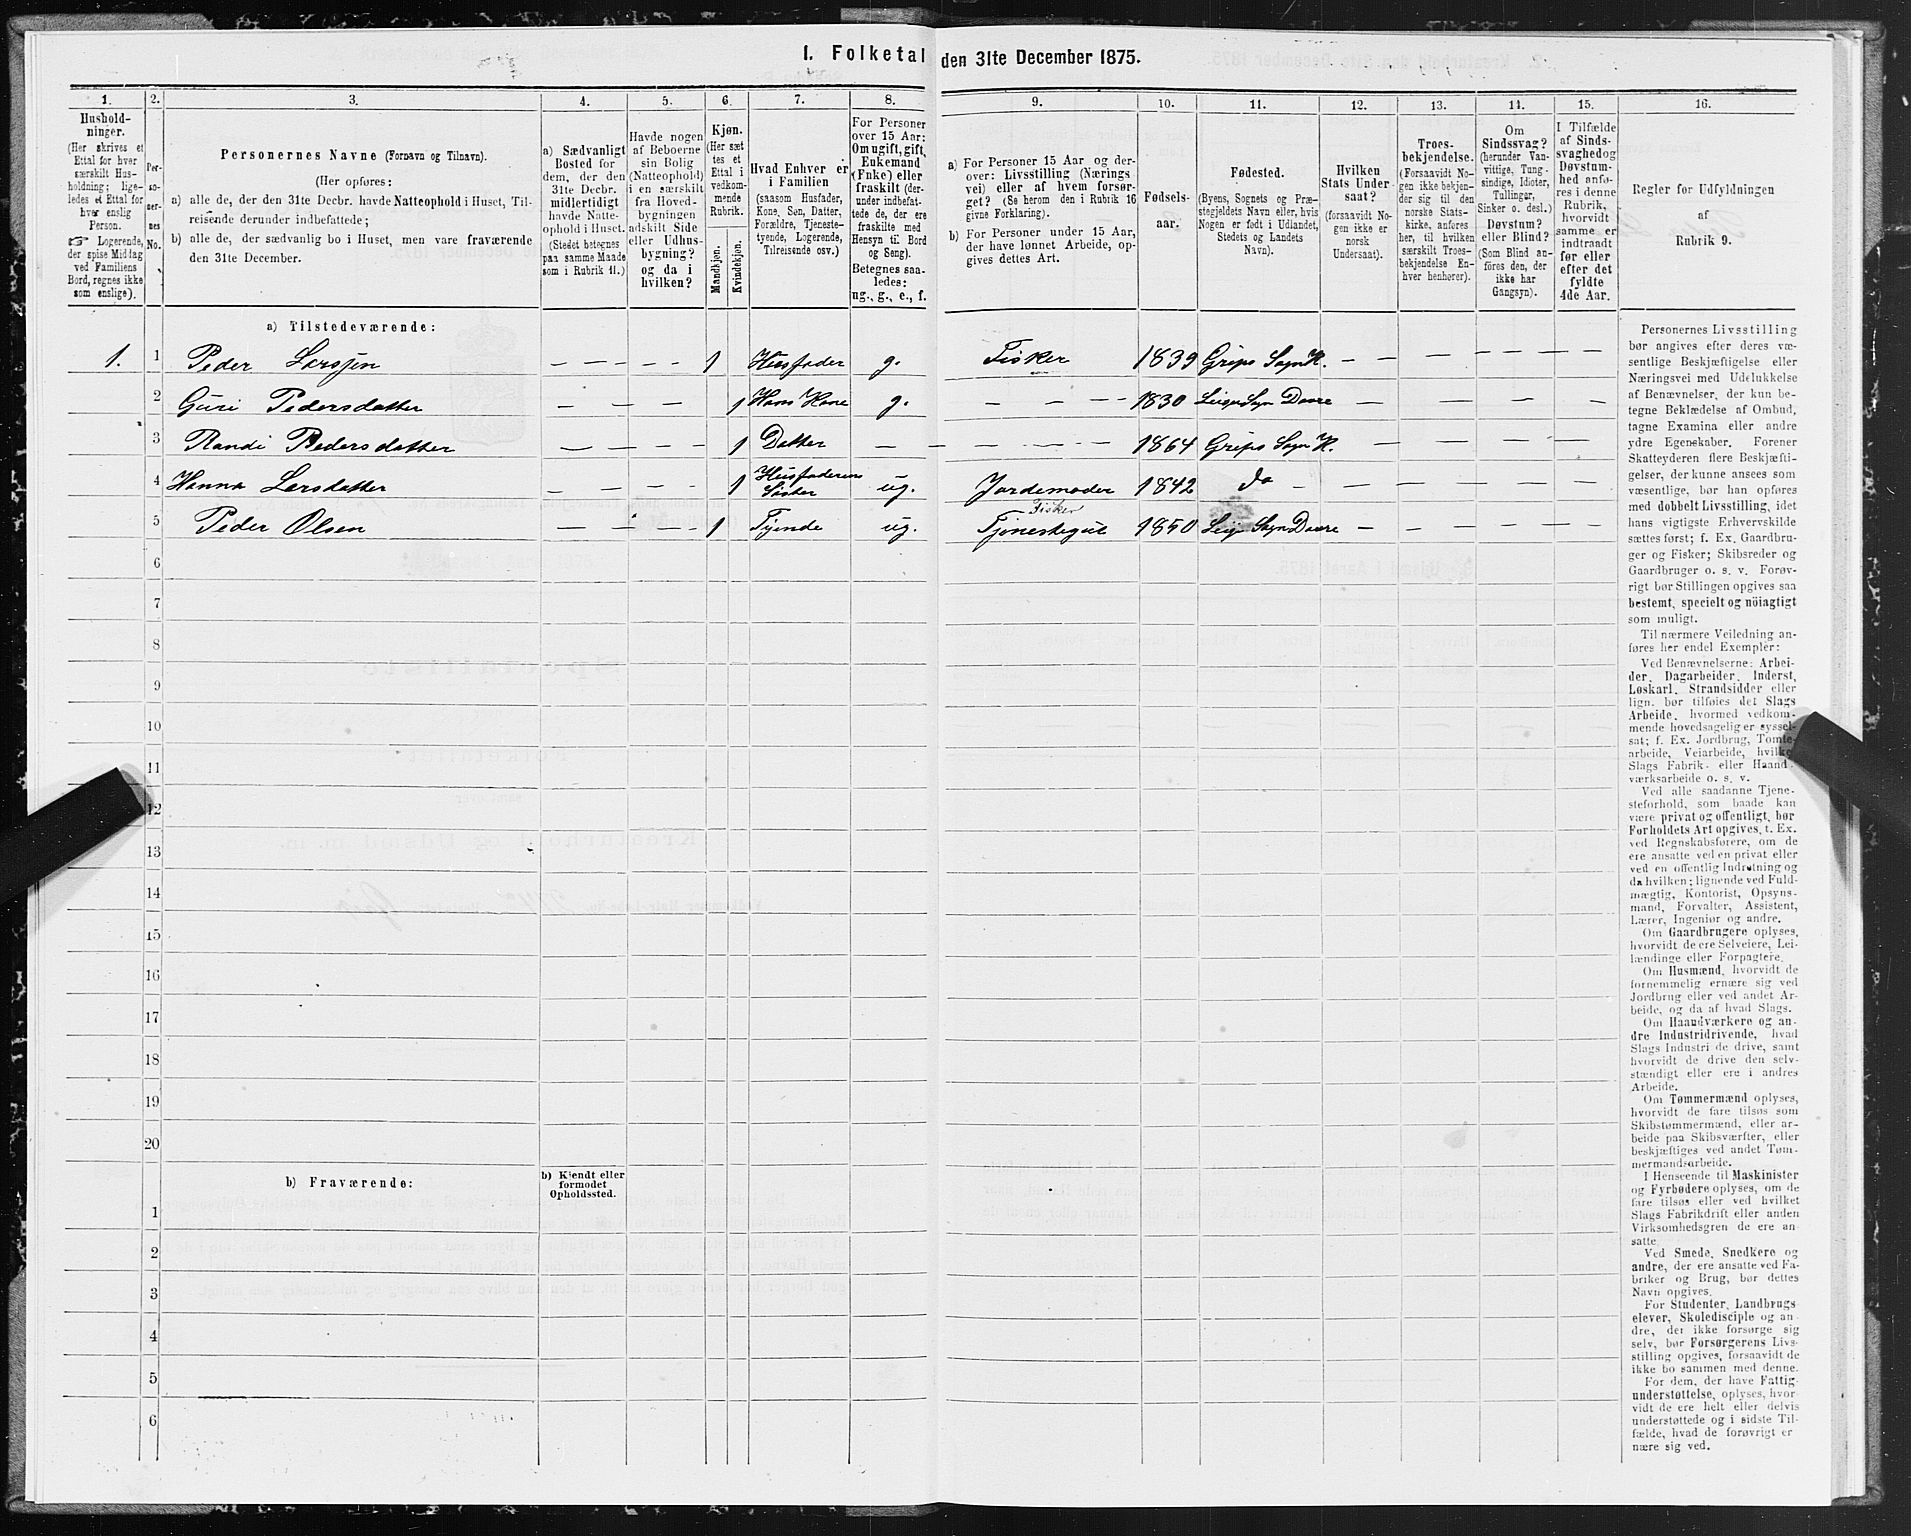 1. Folketal den 31te December 1875.
1. 2. 3. 4. 5. 6. 7. 8. 9. 10. 11. 12. 13. 14. 15. 16.
Hushold-
ninger.
(Her skrives et
Ettal for hver
særskilt Hus-
holdning; lige-
ledes et Ettal for
hver enslig
Person.
☞ Logerende,
der spise Middag
ved Familiens
Bord, regnes ikke
som enslige).
Per-
so-
ner-
nes
No.
Personernes Navne (Fornavn og Tilnavn).
(Her opføres:
a) alle de, der den 31te Decbr. havde Natteophold i Huset, Til-
reisende derunder indbefattede;
b) alle de, der sædvanlig bo i Huset, men vare fraværende
den 31te December.
a) Sædvanligt
Bosted for
dem, der den
31te Decbr.
midlertidigt
havde Natte-
ophold i Huset.
(Stedet betegnes
paa samme Maade
som i Rubrik 11.)
Havde nogen
af Beboerne
sin Bolig
(Natteophold)
i en særskilt
fra Hoved-
bygningen
adskilt Side
eller Udhus-
bygning?
og da i
hvilken?
Kjøn.
(Her sæt
tes et
Ettal i
vedkom-
mende
Rubrik.
Mandkjøn.
Kvindekjøn.
Hvad Enhver er
i Familien
(saasom Husfader,
Kone, Søn, Datter,
Forældre, Tjeneste-
tyende, Logerende,
Tilreisende osv.)
For Personer
over 15 Aar:
Om ugift, gift,
Enkemand
(Enke) eller
fraskilt (der-
under indbefat-
tede de, der ere
fraskilte med
Hensyn til Bord
og Seng).
Betegnes saa-
ledes:
ug., g., e., f.
a) For Personer 15 Aar og der-
over: Livsstilling (Nærings
vei) eller af hvem forsør-
get? (Se herom den i Rubrik 16
givne Forklaring).
b) For Personer under 15 Aar,
der have lønnet Arbeide, op-
gives dettes Art.
Fødsels-
aar.
Fødested.
(Byens, Sognets og Præ-
stegjeldets Navn eller, hvis
Nogen er født i Udlandet,
Stedets og Landets
Navn).
Hvilken
Stats Under-
saat?
(forsaavidt No-
gen ikke er
norsk
Undersaat).
Troes-
bekjendelse.
(Forsaavidt No-
gen ikke bekjen-
der sig til den
norske Stats-
kirke, anføres
her, til hvilken
særskilt Troes-
bekjendelse En-
hver henhører).
Om
Sindssvag?
(herunder Van-
vittige, Tung-
sindige, Idioter,
Tullinger,
Sinker o. desl.)
Døvstum?
eller Blind?
(Som Blind an-
føres den, der
ikke har
Gangsyn).
I Tilfælde
af Sinds-
svaghed og
Døvstum-
hed anfø-
res i denne
Rubrik,
hvorvidt
samme er
indtraadt
før eller
efter det
fyldte
4de Aar.
Regler for Udfyldningen
af
Rubrik 9.
a) Tilstedeværende:
1. 1 Peder Larssen — — — — 1 Husfader g. Fisker 1839 Grips Sogn K. — — — —
2 Guri Pedersdatter — — — — 1 Hans Kone g. — — — 1830 Leigs Sgn Daare — — — —
3 Randi Pedersdatter — — — — 1 Datter — — — — 1864 Grips Sogn K. — — — —
4 Hanna Larsdatter — — — — 1 Husfaderens Søster ug. Jordemoder 1842 do — — — — —
5 Peder Olsen — — — — 1 Tjende ug. Fisker Tjenestegut 1850 Leigs Sogn Daare — — — —
6
7
8
9
10
11
12
13
14
15
16
17
18
19
20
b) Fraværende:
b) Kjendt eller
formodet
Opholdssted.
1
2
3
4
5
6
Personernes Livsstilling
bør angives efter deres væ-
sentlige Beskjæftigelse eller
Næringsvei med Udelukkelse
af Benævnelser, der kun be-
tegne Beklædelse af Ombud,
tagne Examina eller andre
ydre Egenskaber. Forener
Skatteyderen flere Beskjæfti-
gelser, der kunne ansees som
væsentlige, bør han opføres
med dobbelt Livsstilling, idet
hans vigtigste Erhvervskilde
sættes først; f. Ex. Gaardbru-
ger og Fisker; Skibsreder og
Gaardbruger o. s. v. Forøv-
rigt bør Stillingen opgives saa
bestemt, specielt og nøiagtigt
som muligt.
Til nærmere Veiledning an-
føres her endel Exempler:
Ved Benævnelserne: Arbei-
der, Dagarbeider, Inderst,
Løskarl, Strandsidder eller
lign. bør tilføies det Slags
Arbeide, hvormed vedkom-
mende hovedsagelig er syssel-
sat; f. Ex. Jordbrug, Tomte-
arbeide, Veiarbeide, hvilket
Slags Fabrik- eller Haand-
værksarbeide o. s. v.
Ved alle saadanne Tjene-
steforhold, som baade kan
være privat og offentligt, bør
Forholdets Art opgives, t. Ex.
ved Regnskabsførere, om de
ere ansatte ved en privat eller
ved en offentlig Indretning og
da hvilken; lignende ved Fuld-
mægtig, Kontorist, Opsyns-
mand, Forvalter, Assistent,
Lærer, Ingeniør og andre.
Om Gaardbrugere oplyses,
hvorvidt de ere Selveiere, Lei-
lændinge eller Forpagtere.
Om Husmænd, hvorvidt de
fornemmelig ernære sig ved
Jordbrug eller ved andet Ar-
beide, og da af hvad Slags.
Om Haandværkere og an-
dre Industridrivende, hvad
Slags Industri de drive, samt
hvorvidt de drive den selv-
stændigt eller ere i andres
Arbeide.
Om Tømmermænd oplyses,
hvorvidt de fare tilsøs som
Skibstømmermænd, eller ar-
beide paa Skibsværfter, eller
beskjæftiges ved andet Tøm-
mermandsarbeide.
I Henseende til Maskinister
og Fyrbødere oplyses, om de
fare tilsøs eller ved hvilket
Slags Fabrikdrift eller anden
Virksomhedsgren de ere an-
satte.
Ved Smede, Snedkere og
andre, der ere ansatte ved Fa-
briker og Brug, bør dettes
Navn opgives.
For Studenter, Landbrugs
elever, Skoledisciple og an-
dre, der ikke forsørge sig
selv, bør Forsørgerens Livs-
stilling opgives, forsaavidt de
ikke bo sammen med denne.
For dem, der have Fattig-
understøttelse, oplyses, hvor-
vidt de ere helt eller delvis
understøttede og i sidste Til-
fælde, hvad de forøvrigt er
nære sig ved.